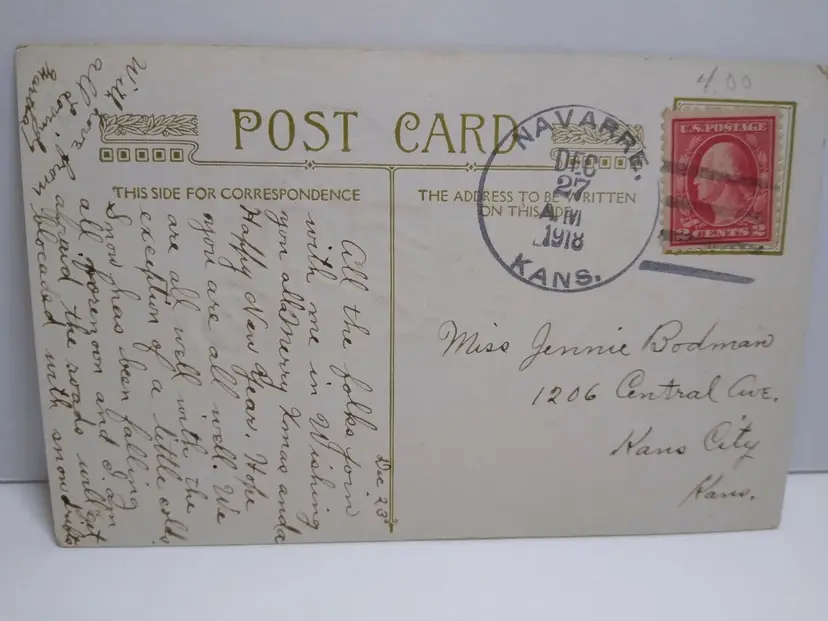 4.00
POST CARD
THIS SIDE FOR CORRESPONDENCE
THE ADDRESS TO BE WRITTEN
ON THIS SIDE
NAVARRE,
DEC
27
AM
1918
KANS.
U.S. POSTAGE
2 CENTS 2
Miss Jennie Bodman
1206 Central Ave.
Kans City
Kans.
Dec 23
All the folks join
with me in Wishing
you all Merry Xmas and a
Happy New Year. Hope
you are all well. We
are all well with the
exception of a little cold.
Snow has been falling
all forenoon and I am
afraid the roads will get
blocaded with snow drifts
With love
to all. from